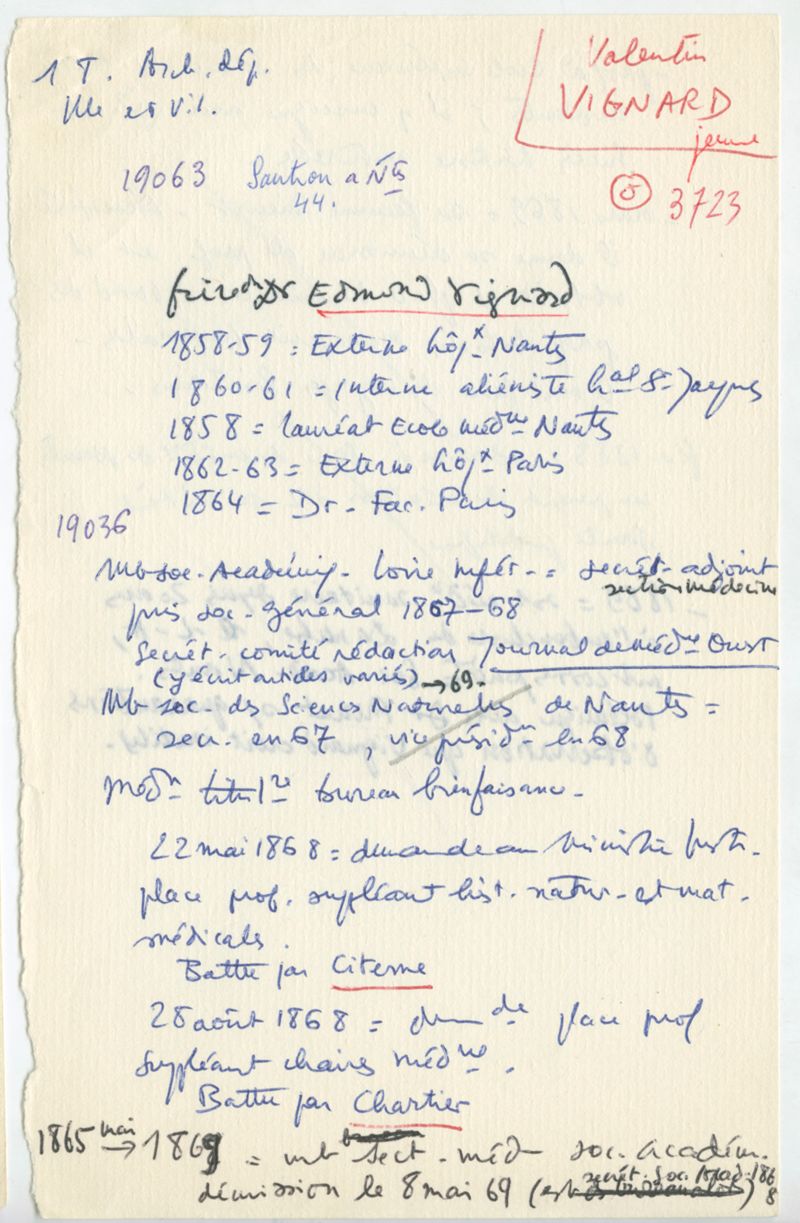 1 T. Arch. dép.
Ille et Vil.
Valentin
VIGNARD
jeune
⑤ 3723
19063 Sautron a Ntes
44.
frère du Dr Edmond Vignard
1858-59 = Externe hôpx Nantes
1860-61 = Interne aliéniste hal St-Jacques
1858 = lauréat Ecole médne Nantes
1862-63 = Externe hôpx Paris
1864 = Dr - Fac. Paris
19036
Mb soc. Académiq - Loire Infér. = secrét- adjoint
section médecine
puis sec. général 1867-68
secrét - comité rédaction Journal de médne Ouest
(y écrit articles variés) → 69.
Mb soc. des Sciences Naturelles de Nantes =
secr. en 67, vice présidn en 68
Médn titu re bureau bienfaisance -
22 mai 1868 = demande au Ministre
place prof. suppléant hist. natur. et mat.
médicales.
Battu par Citerne
28 août 1868 = demde place prof
suppléant chaires médne.
Battu par Chartier
1865 mai → 1869 = mb sect - médn soc. académ.
démission le 8 mai 69 (est secrét. Soc. Acad. 1868)